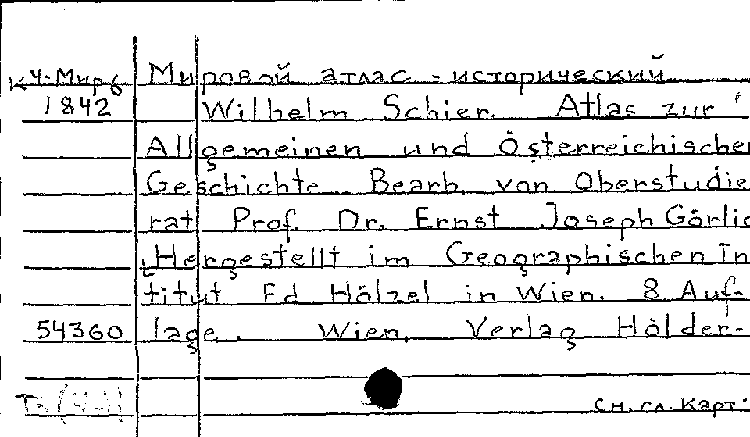 К4-Мир6 Мировой атлас - исторический
1842 Wilhelm Schier. Atlas zur
Allgemeinen und Österreichischen
Geschichte. Bearb. von Oberstudie
rat Prof. Dr. Ernst Joseph Görlic
Hergestellt im Geographischen In
titut Ed Hölzel in Wien. 8 Auf-
54360 lage. Wien, Verlag Hölder-
См. гл. карт.